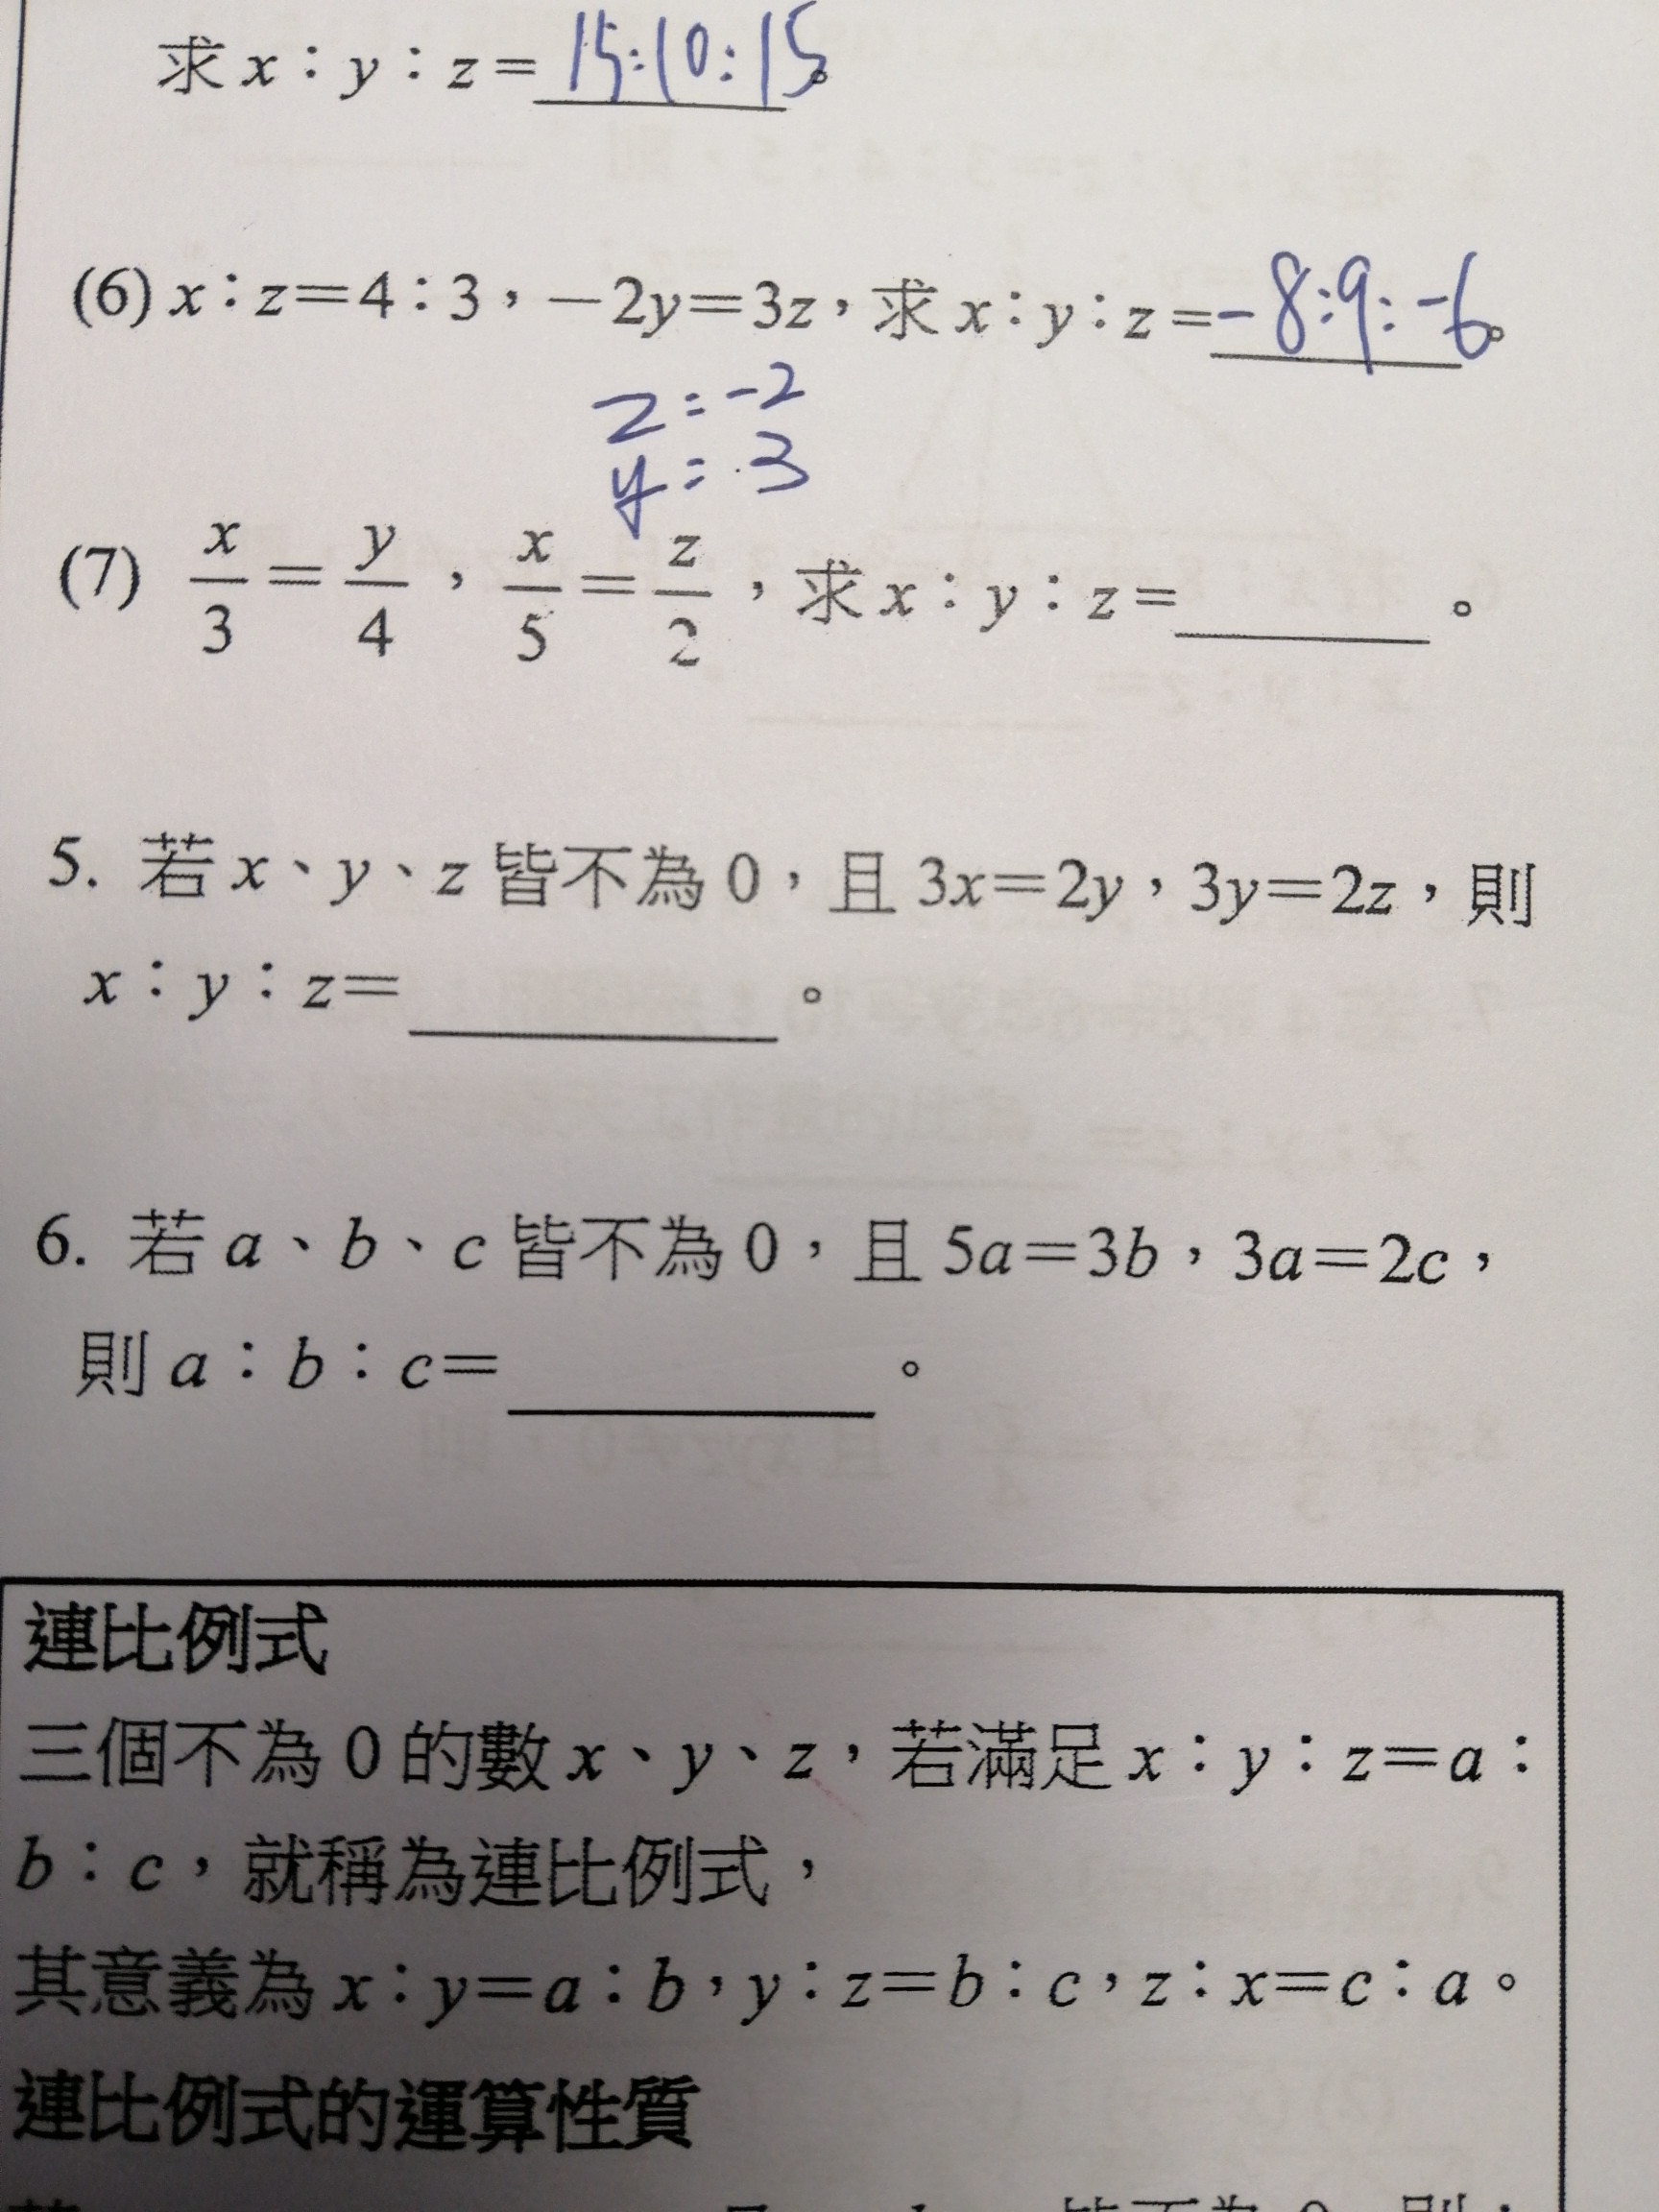 求 x：y：z＝15:10:15。
(6) x：z＝4：3，－2y＝3z，求 x：y：z＝-8:9:-6。
z=-2
y=3
(7) x/3＝y/4，x/5＝z/2，求 x：y：z＝______。
5. 若 x、y、z 皆不為 0，且 3x＝2y，3y＝2z，則
x：y：z＝______。
6. 若 a、b、c 皆不為 0，且 5a＝3b，3a＝2c，
則 a：b：c＝______。
連比例式
三個不為 0 的數 x、y、z，若滿足 x：y：z＝a：
b：c，就稱為連比例式，
其意義為 x：y＝a：b，y：z＝b：c，z：x＝c：a。
連比例式的運算性質